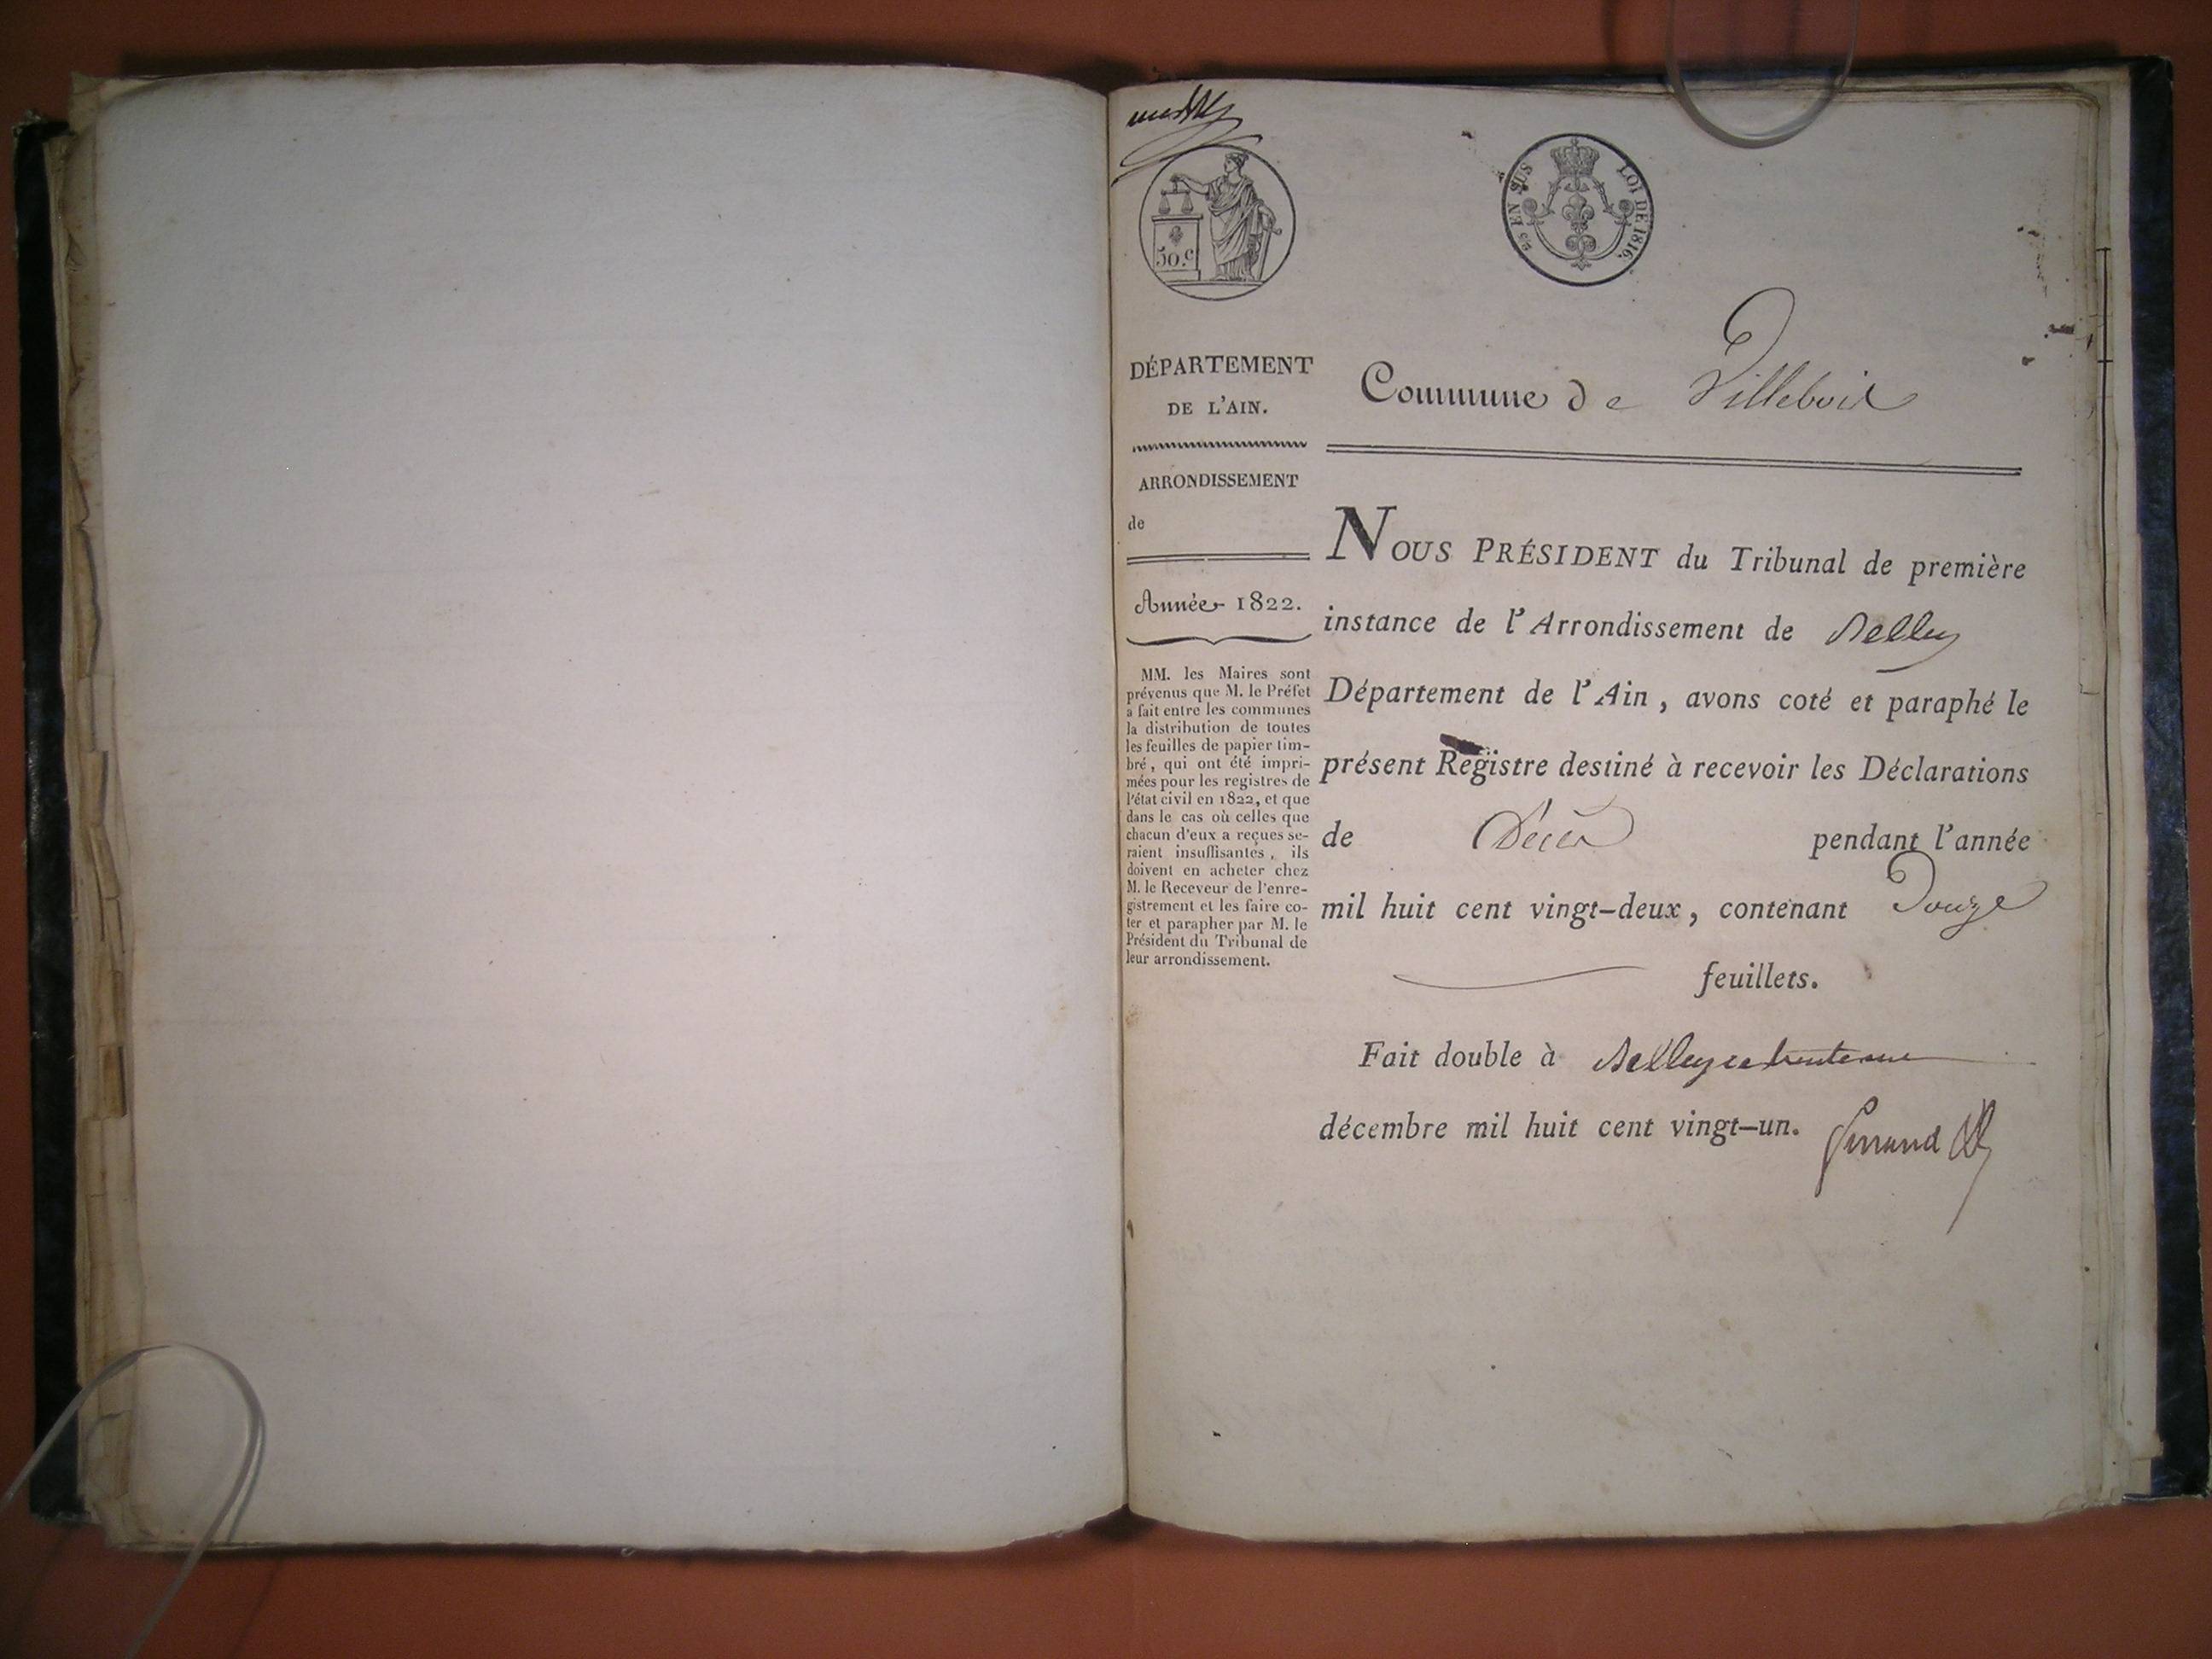 50.c
25 EN SUS
LOI DE 1816.
DÉPARTEMENT
DE L'AIN.
ARRONDISSEMENT
de
Année 1822.
MM. les Maires sont
prévenus que M. le Préfet
a fait entre les communes
la distribution de toutes
les feuilles de papier tim-
bré, qui ont été impri-
mées pour les registres de
l'état civil en 1822, et que
dans le cas où celles que
chacun d'eux a reçues se-
raient insuffisantes, ils
doivent en acheter chez
M. le Receveur de l'enre-
gistrement et les faire co-
ter et parapher par M. le
Président du Tribunal de
leur arrondissement.
Commune de Villebois
NOUS PRÉSIDENT du Tribunal de première
instance de l'Arrondissement de Belley
Département de l'Ain, avons coté et paraphé le
présent Registre destiné à recevoir les Déclarations
de Décès pendant l'année
mil huit cent vingt-deux, contenant Douze
feuillets.
Fait double à Belley ce trente un
décembre mil huit cent vingt-un.